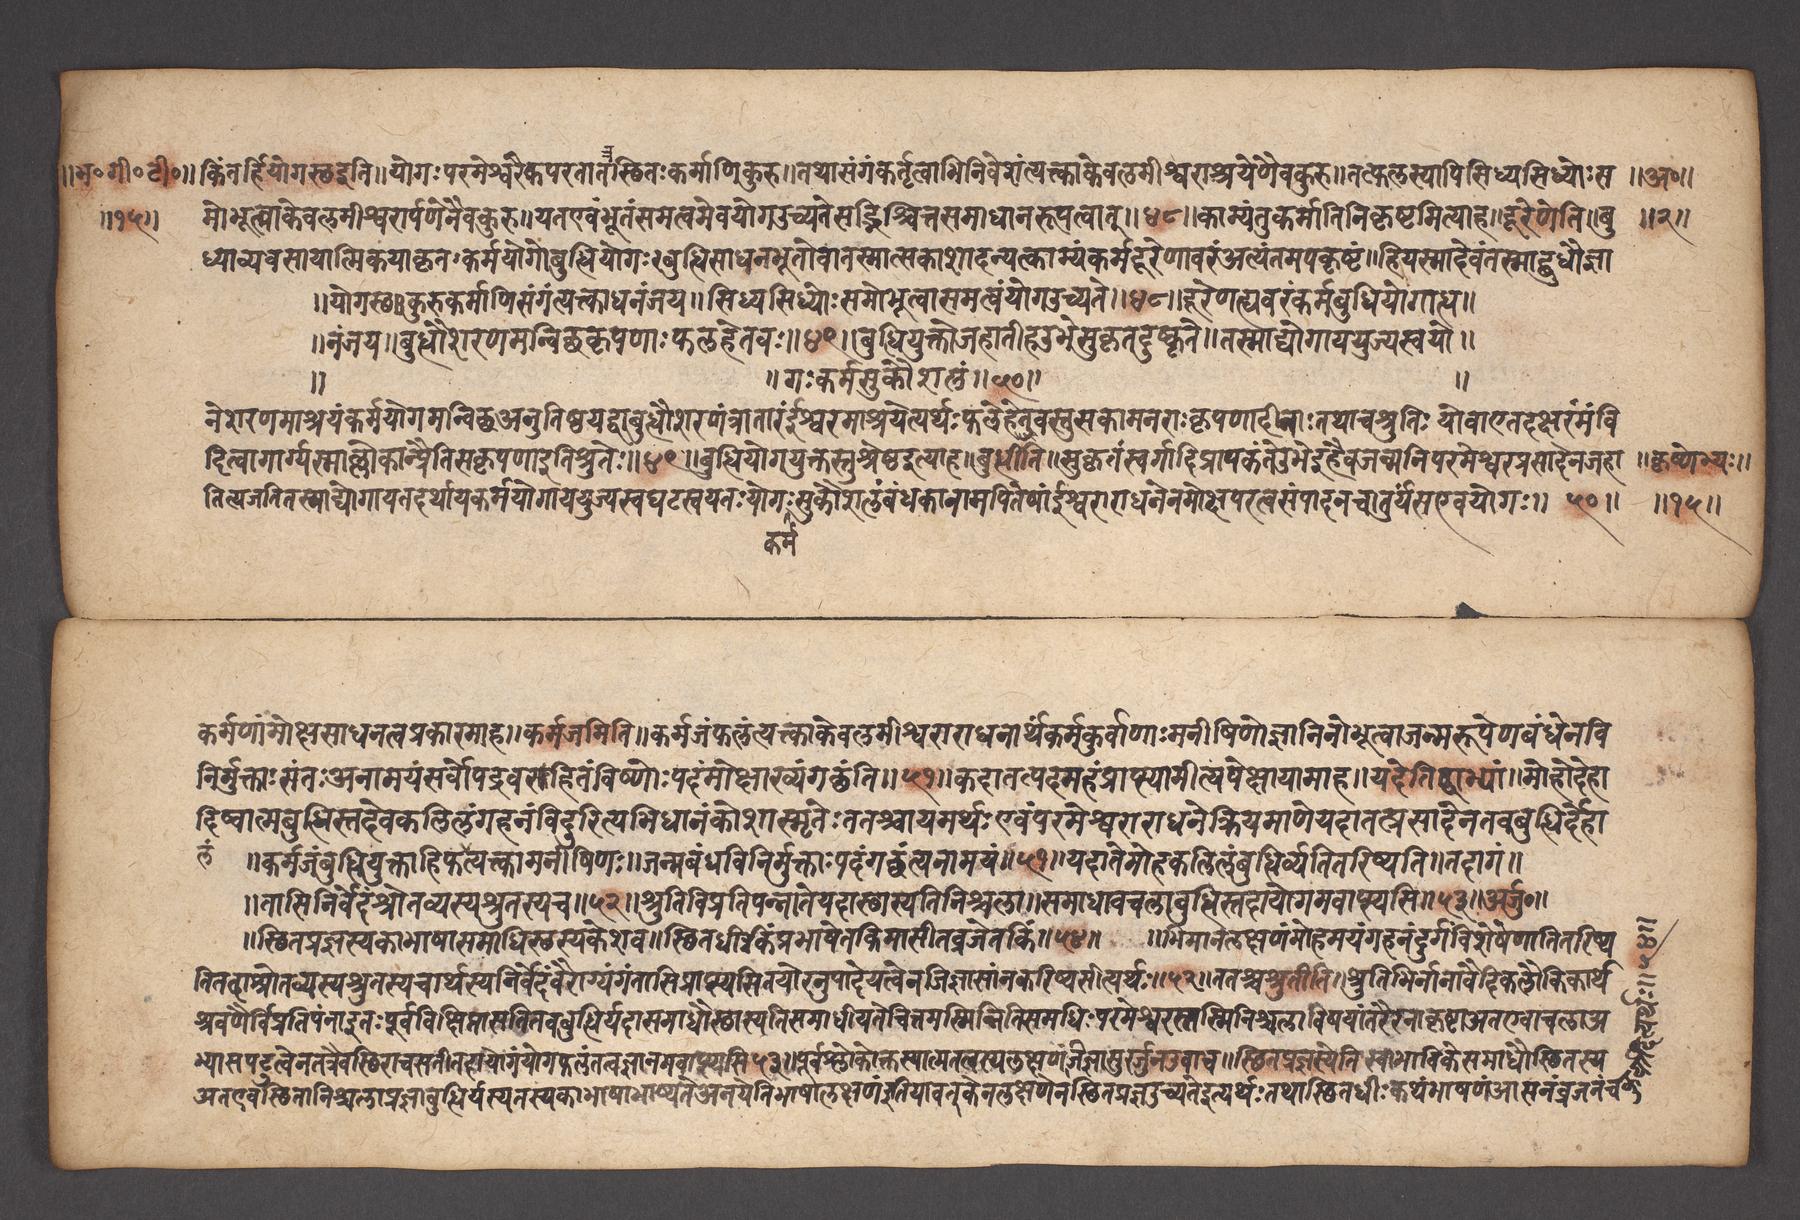 ॥भ॰गी॰टी॰॥ किंतर्हियोगस्छइति॥योगःपरमेश्वरैकपरतातत्रस्छितःकर्माणिकुरु॥तथासंगंकर्तृत्वाभिनिवेशंत्यक्त्वाकेवलमीश्वराश्रयेणैवकुरु॥तत्फलस्यापिसिध्यसिध्योःस ॥अ॰॥
॥१५॥ मोभूत्वाकेवलमीश्वरार्पणेनैवकुरु॥यतएवंभूतंसमत्वमेवयोगउच्यतेसद्भिश्चित्तसमाधानरूपत्वात्॥४८॥काम्यंतुकर्मातिनिकृष्टमित्याह॥दूरेणेति॥बु ॥२॥
ध्याव्यवसायात्मिकयाकृतःकर्मयोगोबुद्धियोगःबुद्धिसाधनभूतोवातस्मात्सकाशादन्यत्काम्यंकर्मदूरेणावरंअत्यंतमपकृष्टं॥हियस्मादेवंतस्माद्बुधौज्ञा
॥योगस्छःकुरुकर्माणिसंगंत्यक्त्वाधनंजय॥सिध्यसिध्योःसमोभूत्वासमत्वंयोगउच्यते॥४८॥दूरेणह्यवरंकर्मबुधियोगाध॥
॥नंजय॥बुद्धौशरणमन्विछकृपणाःफलहेतवः॥४९॥बुधियुक्तोजहातीहउभेसुकृतदुष्कृते॥तस्माद्योगाययुज्यस्वयो॥
॥ ॥गःकर्मसुकौशलं॥५०॥ ॥
नेशरणमाश्रयंकर्मयोगमन्विछअनुतिष्ठयद्वाबुधौशरणंत्रातारंईश्वरमाश्रयेत्यर्थःफलहेतवस्तुसकामनराःकृपणादीनाःतथाचश्रुतिः योवाएतदक्षरंमवि
दित्वागार्ग्यस्माल्लोकात्प्रैतिसकृपणाइतिश्रुतेः॥४९॥बुधियोगयुक्तस्तुश्रेष्ठइत्याह॥बुद्धीति॥सुकृतंस्वर्गादिप्रापकंतेउभेइहैवजन्मनिपरमेश्वरप्रसादेनजहा ॥कृष्णेभ्यः॥
तित्यजतितस्माद्योगायतदर्थायकर्मयोगाययुज्यस्वघटस्वयतःयोगःसुकौशलंबंधकानामपितेषांईश्वराराधनेनमोक्षपरत्वसंपादनचातुर्यंसएवयोगः॥ ५०॥ ॥१५॥
कर्म
कर्मणांमोक्षसाधनत्वप्रकारमाह॥कर्मजमिति॥कर्मजंफलंत्यक्त्वाकेवलमीश्वराराधनार्थंकर्मकुर्वाणाःमनीषिणोज्ञानिनोभूत्वाजन्मरूपेणबंधेनवि
निर्मुक्ताःसंतःअनामयंसर्वोपद्रवरहितंविष्णोःपदंमोक्षाख्यंगछंति॥५१॥कदातत्पदमहंप्राप्स्यामीत्यपेक्षायामाह॥यदेतिद्वाभ्यां॥मोहोदेहा
दिष्वात्मबुद्धिस्तदेवकलिलंगहनंविदुरित्यभिधानंकोशस्मृतेःततश्चायमर्थःएवंपरमेश्वराराधनेक्रियमाणेयदातत्प्रसादेनतवबुद्धिर्देहा
लं ॥कर्मजंबुद्धियुक्ताहिफत्यक्त्वामनीषिणः॥जन्मबंधविनिर्मुक्ताःपदंगछंत्यनामयं॥५१॥यदातेमोहकलिलंबुधिर्व्यतितरिष्यति॥तदागं॥
॥तासिनिर्वेदंश्रोतव्यस्यश्रुतस्यच॥५२॥श्रुतिविप्रतिपन्नातेयदास्छास्यतिनिश्चला॥समाधावचलाबुधिस्तदायोगमवाप्स्यसि॥५३॥अर्जु॰॥
॥स्छितप्रज्ञस्यकाभाषासमाधिस्छस्यकेशव॥स्छितधीःकिंप्रभाषेतकिमासीतव्रजेतकिं॥५४॥ ॥भिमानलक्षणंमोहमयंगहनंदुर्गंविशेषेणातितरिष्य
तितदाश्रोतव्यस्यश्रुतस्यचार्थस्यनिर्वेदंवैराग्यंगंतासिप्राप्स्यसितयोरनुपादेयत्वेनजिज्ञासांनकरिष्यसीत्यर्थः॥५२॥ततश्चश्रुतीति॥श्रुतिभिर्नानावैदिकलौकिकार्थ
श्रवणैर्विप्रतिपंनाइतःपूर्वंविक्षिप्तासतितवबुधिर्यदासमाधौस्छास्यतिसमाधीयतेचित्तमस्मिन्नितिसमाधिःपरमेश्वरस्तस्मिन्निश्चलाविषयांतरैरनाकृष्टाअतएवाचलाअ
भ्यासपटुत्वेनतत्रैवस्छिराचसतीतदायोगंयोगफलंतत्वज्ञानमवाप्स्यसि५३॥पूर्वश्लोकोक्तस्यात्मतत्वस्यलक्षणंजिज्ञासुरर्जुनउवाच॥स्छितप्रज्ञस्येति स्वाभाविकेसमाधौस्छितस्य
अतएवस्छितानिश्चलाप्रज्ञाबुधिर्यस्यतस्यकाभाषाभाष्यतेअनयेतिभाषालक्षणंइतियावत्केनलक्षणेनस्छितप्रज्ञउच्यतेइत्यर्थःतथास्छितधीःकथंभाषणंआसनंव्रजनंच